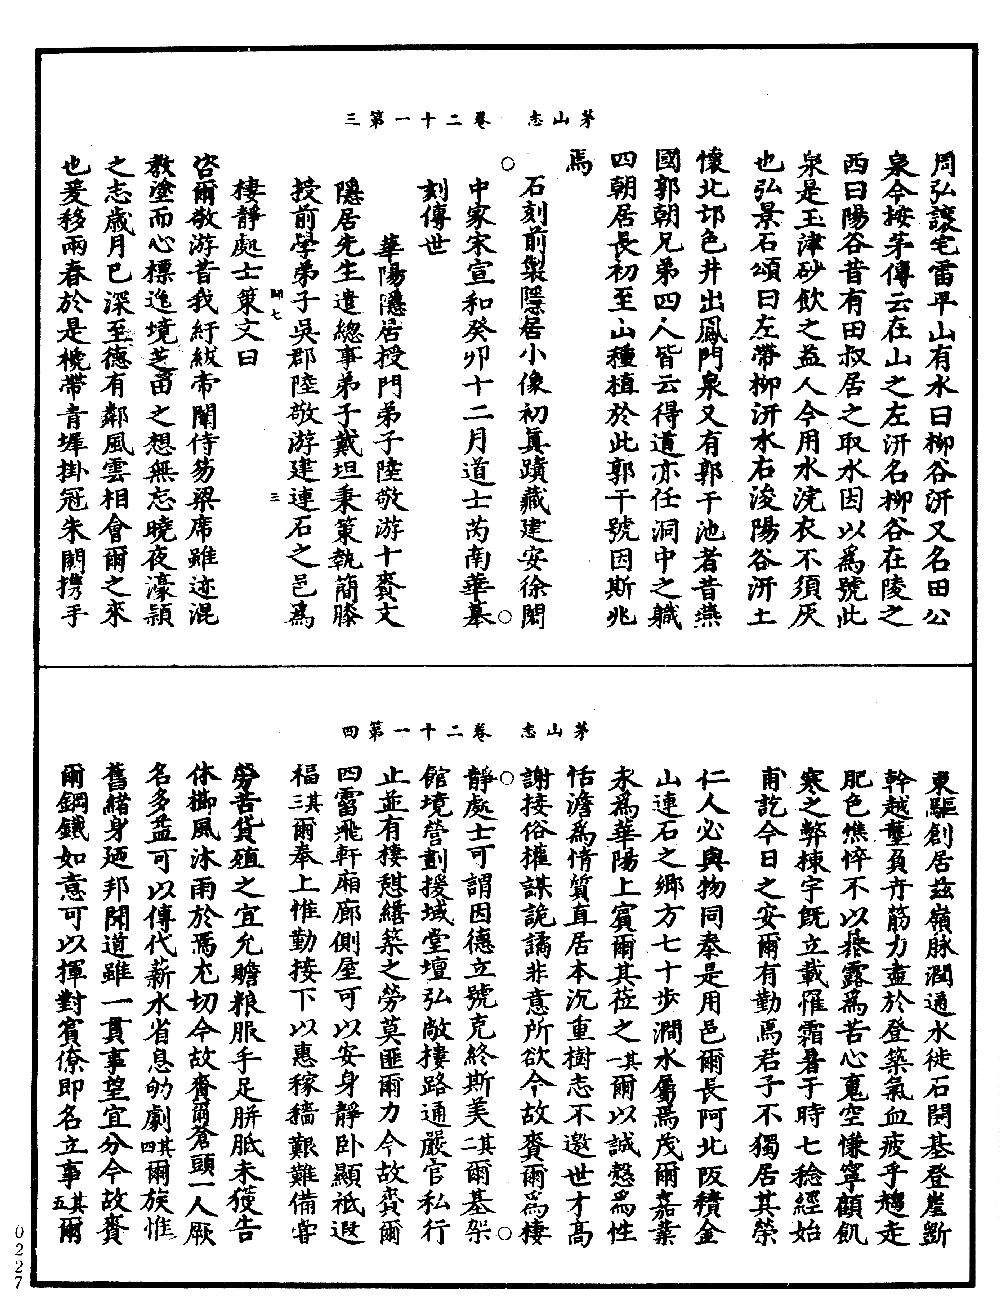 茅山志　卷二十一第三
周弘讓宅雷平山有水曰柳谷汧又名田公
泉今按茅傳云在山之左汧名柳谷在陵之
西曰陽谷昔有田叔居之取水因以為號此
泉是玉津砂飲之益人今用水浣衣不須灰
也弘景石頌曰左帶柳汧水右浚陽谷汧土
懷北邙色井出鳳門泉又有郭干池者昔燕
國郭朝兄弟四人皆云得道亦任洞中之職
四朝居長初至山種植於此郭干號因斯兆
焉
石刻前製隱居小像初真蹟藏建安徐閎
中家宋宣和癸卯十二月道士芮南華摹
刻傳世
華陽隱居授門弟子陸敬游十賚文
隱居先生遣總事弟子戴坦秉策執簡膝
授前學弟子吳郡陸敬游建連石之邑為
棲靜處士策文曰
師七
三
咨爾敬游昔我紆紱帝闈侍芴梁席雖迹混
教塗而心標逸境芝畄之想無忘曉夜濠潁
之志歲月已深至德有鄰風雲相會爾之來
也爰移兩春於是櫬帶青墀掛冠朱闕攜手
茅山志　卷二十一第四
東驅創居茲嶺脉潤通水徙石開基登崖斷
幹越壟負卉筋力盡於登築氣血疲乎趨走
肥色憔悴不以暴露為苦心蒐空慊寧顧飢
寒之弊棟宇既立載罹霜暑于時七稔經始
甫訖今日之安爾有勤焉君子不獨居其榮
仁人必與物同奉是用邑爾長阿北阪積金
山連石之鄉方七十步澗水屬焉茂爾嘉業
永為華陽上賓爾其莅之其一爾以誠慤為性
恬澹為情質直居本沉重樹志不邀世才高
謝接俗權謀詭譎非意所欲今故賚爾為棲
靜處士可謂因德立號克終斯美其二爾基架
館境營劃援域堂壇弘敞棲路通嚴官私行
止並有棲憇繕築之勞莫匪爾力今故賚爾
四霤飛軒廂廊側屋可以安身靜臥顯祇遐
福其三爾奉上惟勤接下以惠稼穡艱難備甞
勞苦貸殖之宜允贍粮服手足胼胝未獲告
休櫛風沐雨於焉尤切今故賚爾蒼頭一人厥
名多益可以傳代薪水省息劬劇其四爾族惟
舊緒身廼邦開道雖一貫事望宜分今故賚
爾鋼鐵如意可以揮對賓僚即名立事其五爾
0227